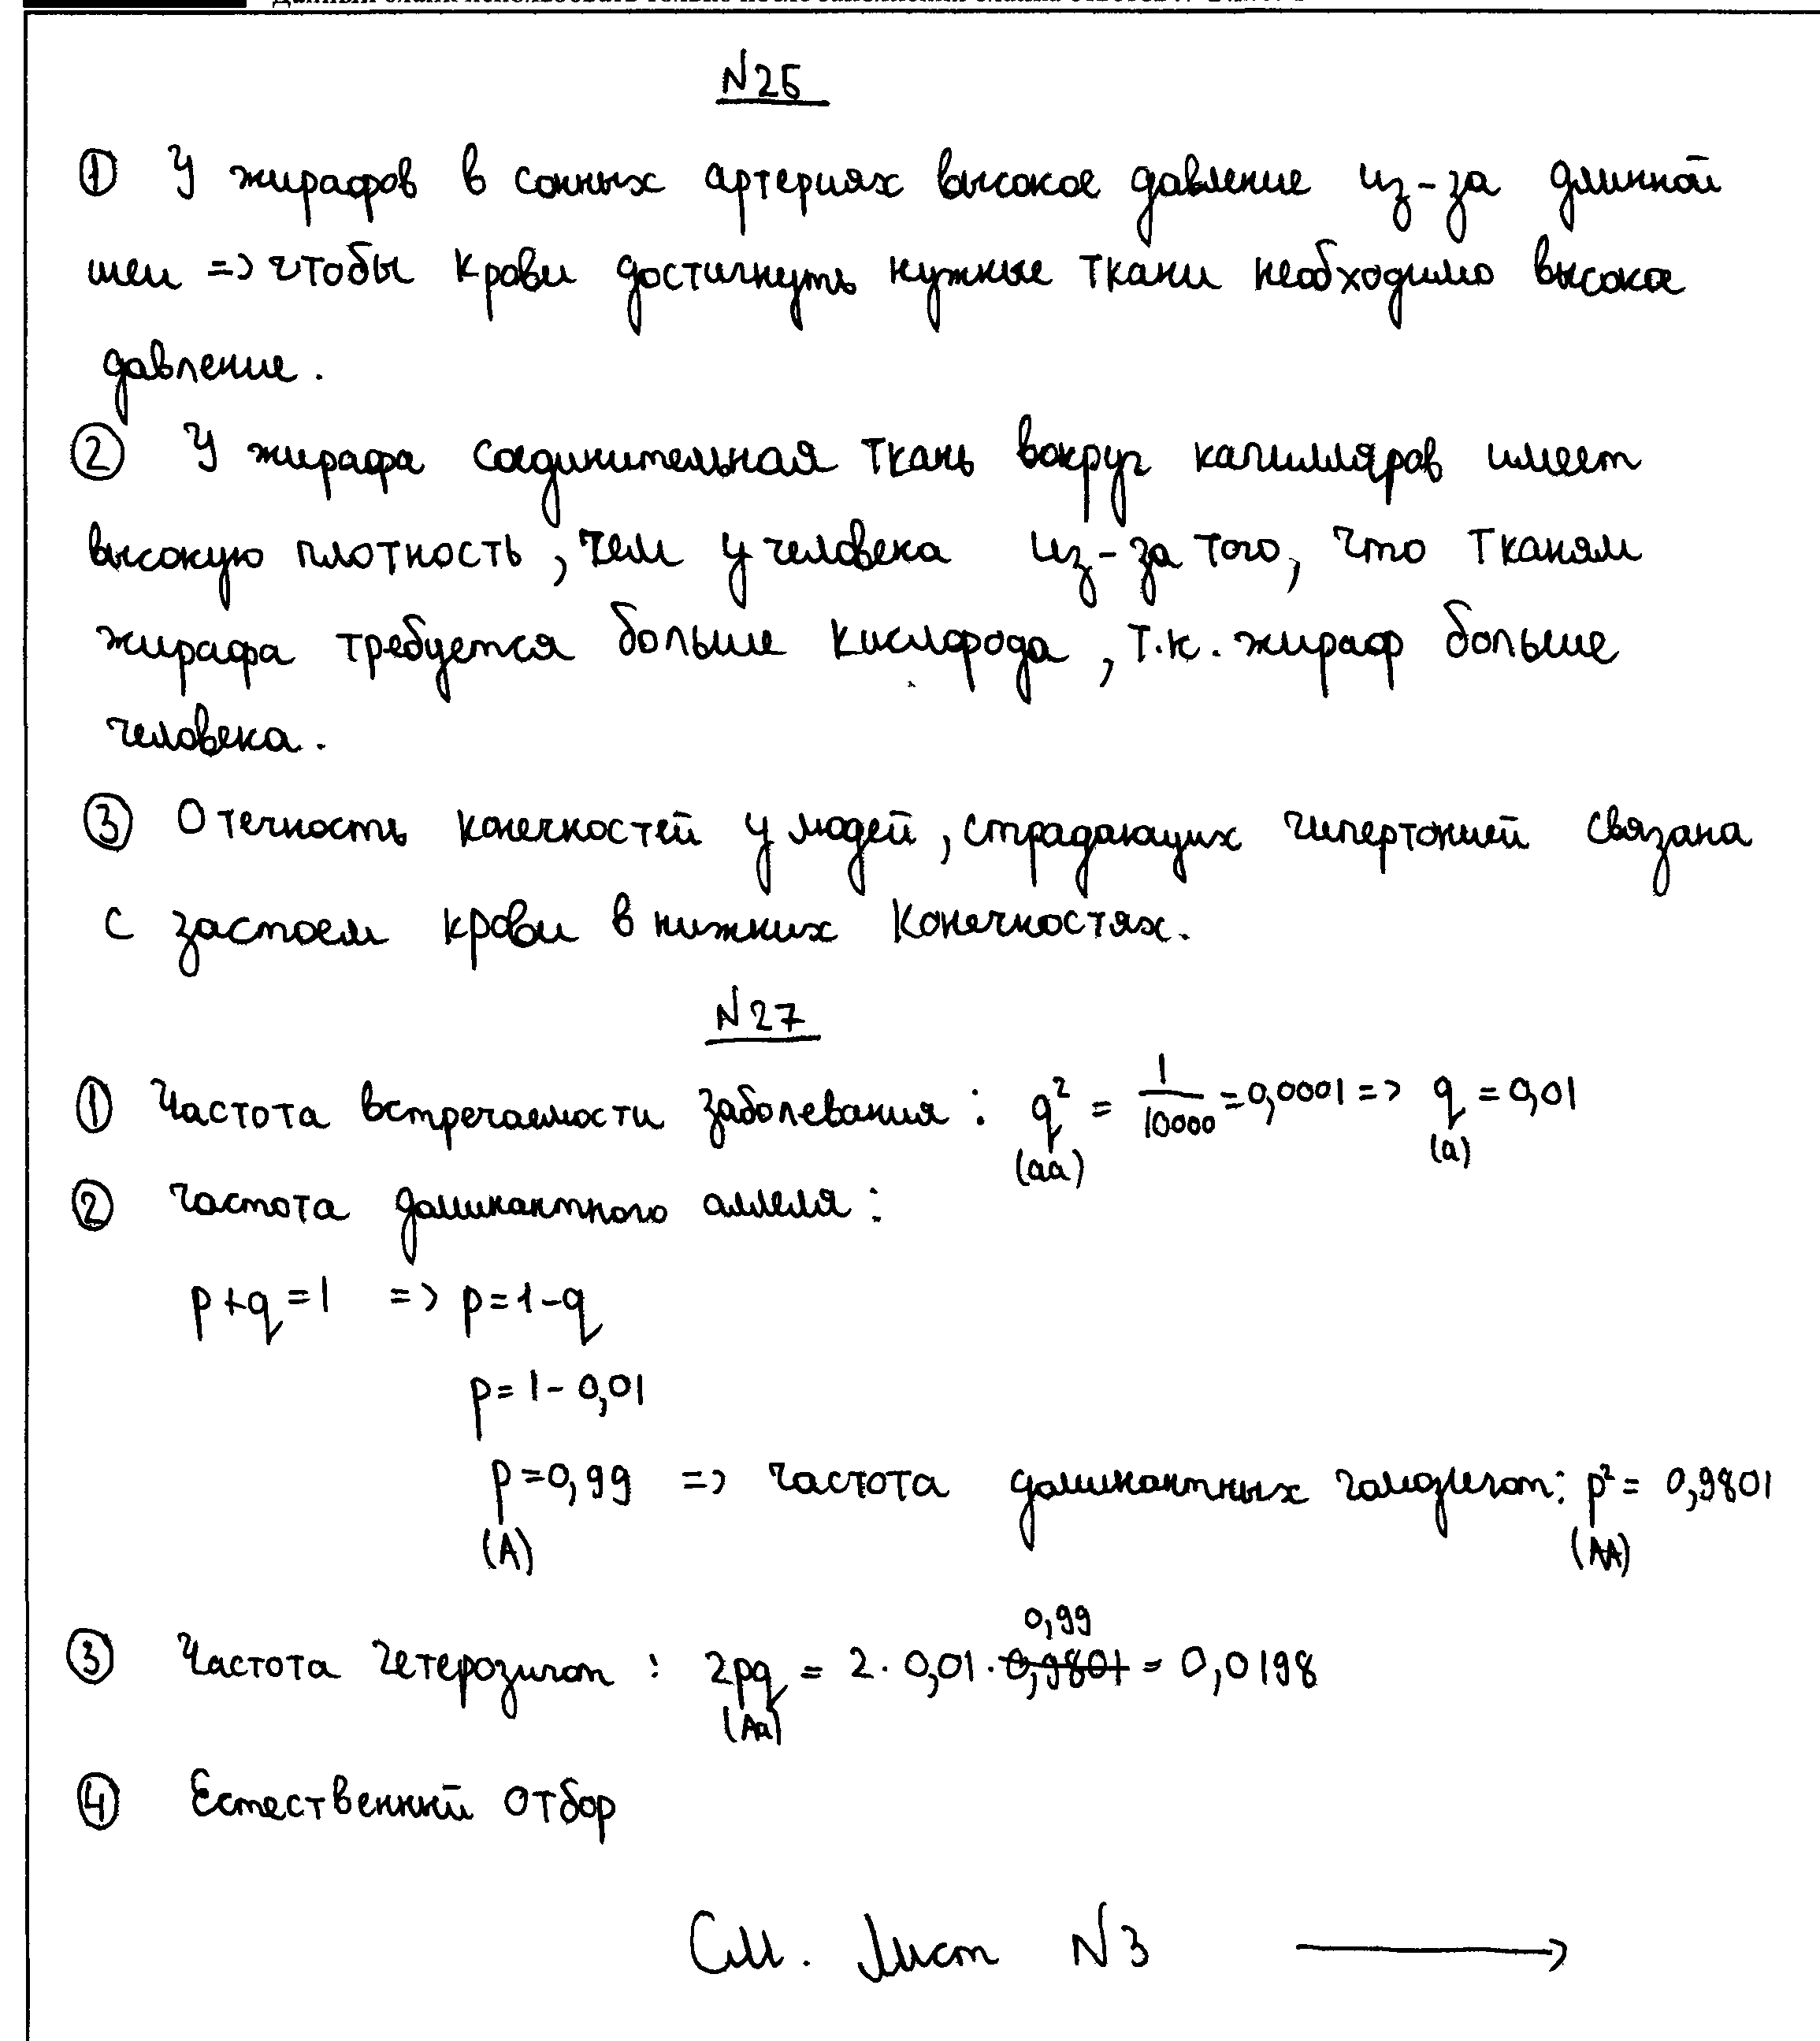 N25
① У жирафов в сонных артериях высокое давление из-за длинной
шеи => чтобы крови достигнуть нужные ткани необходимо высокое
давление.
② У жирафа соединительная ткань вокруг капилляров имеет
высокую плотность, чем у человека из-за того, что тканям
жирафа требуется больше кислорода, т.к. жираф больше
человека.
③ Отечность конечностей у людей, страдающих гипертонией связана
с застоем крови в нижних конечностях.
N27
① Частота встречаемости заболевания: q² = 1/10000 = 0,0001 => q = 0,01
(aa) (a)
② Частота доминантного аллеля:
p+q=1 => p=1-q
p=1-0,01
p=0,99 => частота доминантных гомозигот: p² = 0,9801
(A) (AA)
0,99
③ Частота гетерозигот: 2pq = 2·0,01·0,9801 = 0,0198
(Aa)
④ Естественный отбор
См. Лист N3 →